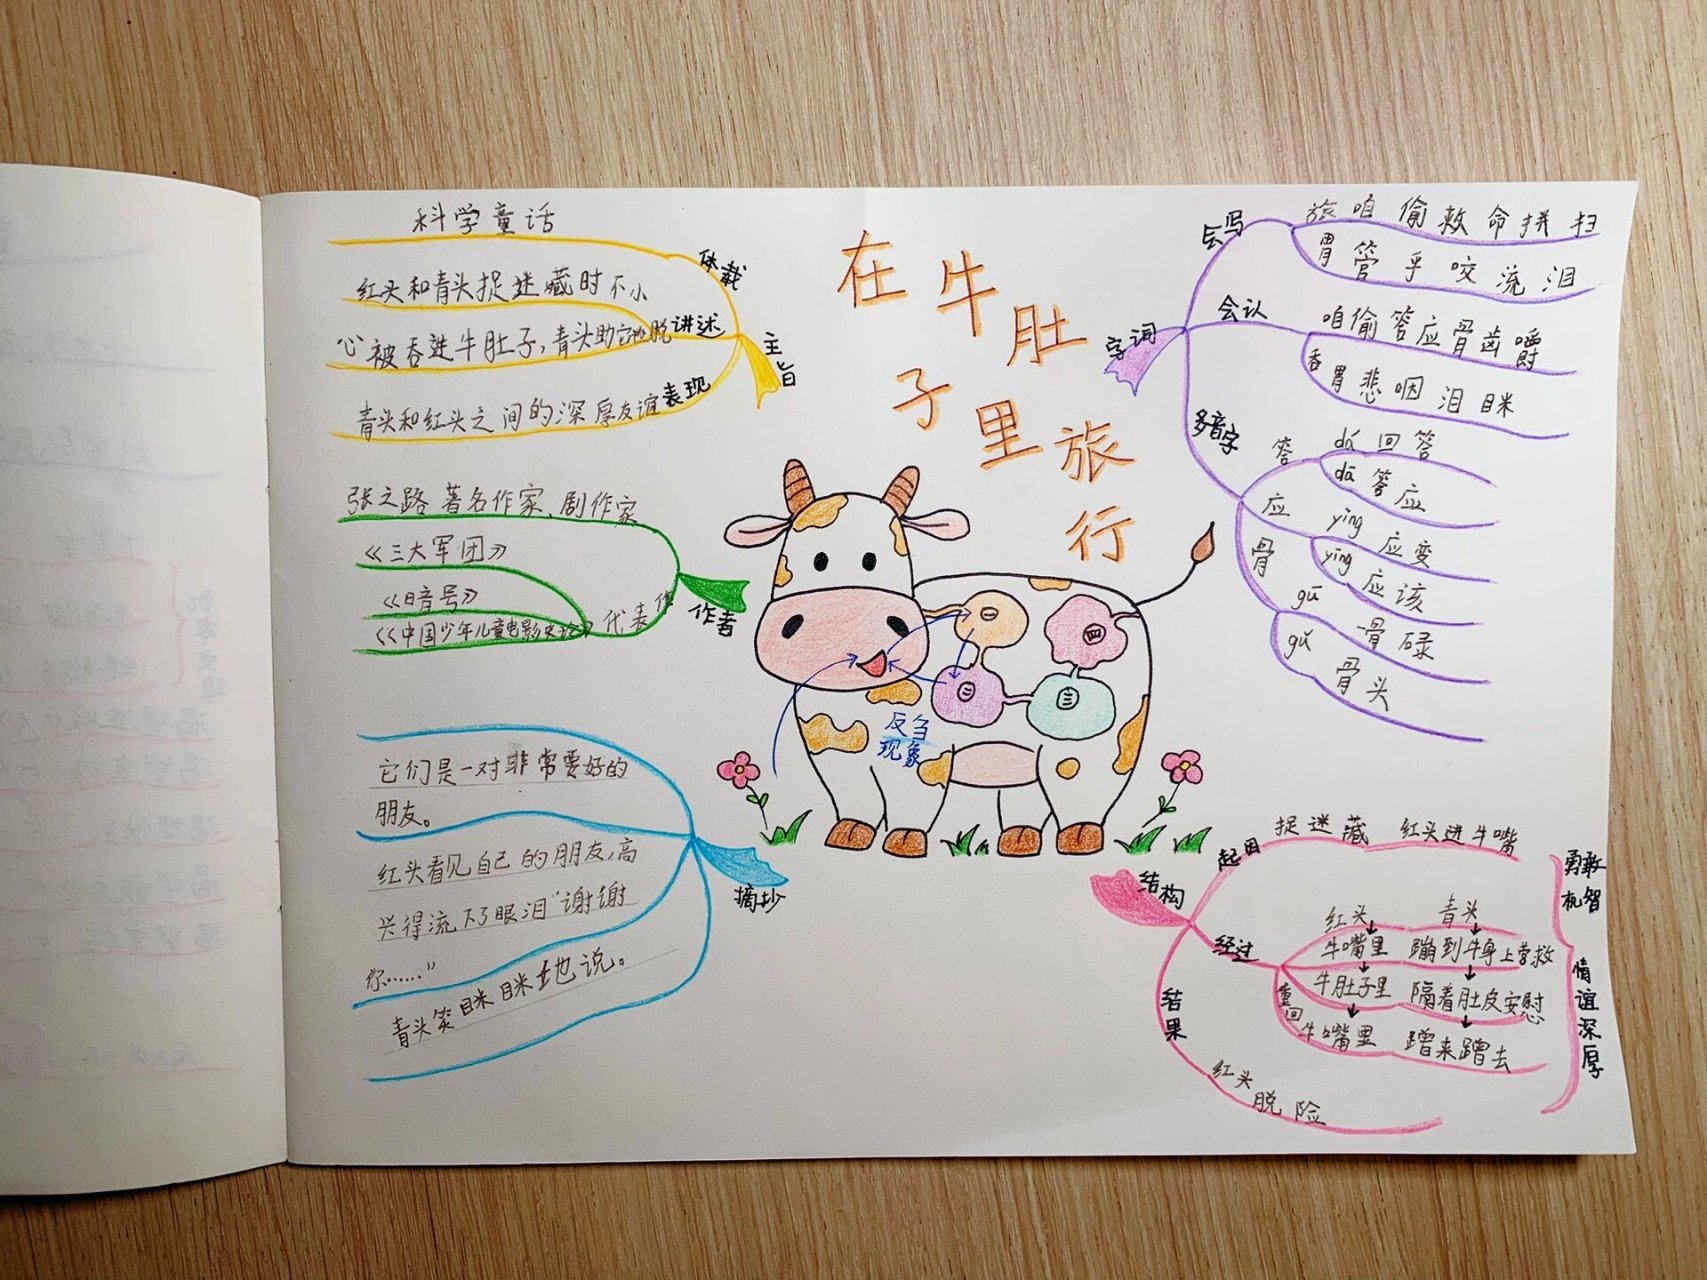 在牛肚子里旅行
主旨
体裁
科学童话
讲述
红头和青头捉迷藏时不小
心被吞进牛肚子，青头助它逃脱
表现
青头和红头之间的深厚友谊
作者
张之路 著名作家、剧作家
代表作
《三大军团》
《暗号》
《中国少年儿童电影史论》
摘抄
它们是一对非常要好的
朋友。
红头看见自己的朋友，高
兴得流下了眼泪“谢谢
你……”
青头笑眯眯地说。
一
二
三
四
反刍
现象
字词
会写
旅 咱 偷 救 命 拼 扫
胃 管 乎 咬 流 泪
会认
咱 偷 答 应 骨 齿 嚼
吞 胃 悲 咽 泪 眯
多音字
答
dá 回答
dā 答应
应
yìng 应变
yīng 应该
骨
gū 骨碌
gǔ 骨头
结构
起因
捉迷藏 红头进牛嘴
经过
红头 青头
牛嘴里 蹦到牛身上营救
牛肚子里 隔着肚皮安慰
重回
牛嘴里 蹭来蹭去
结果
红头脱险
勇敢
机智
情谊深厚